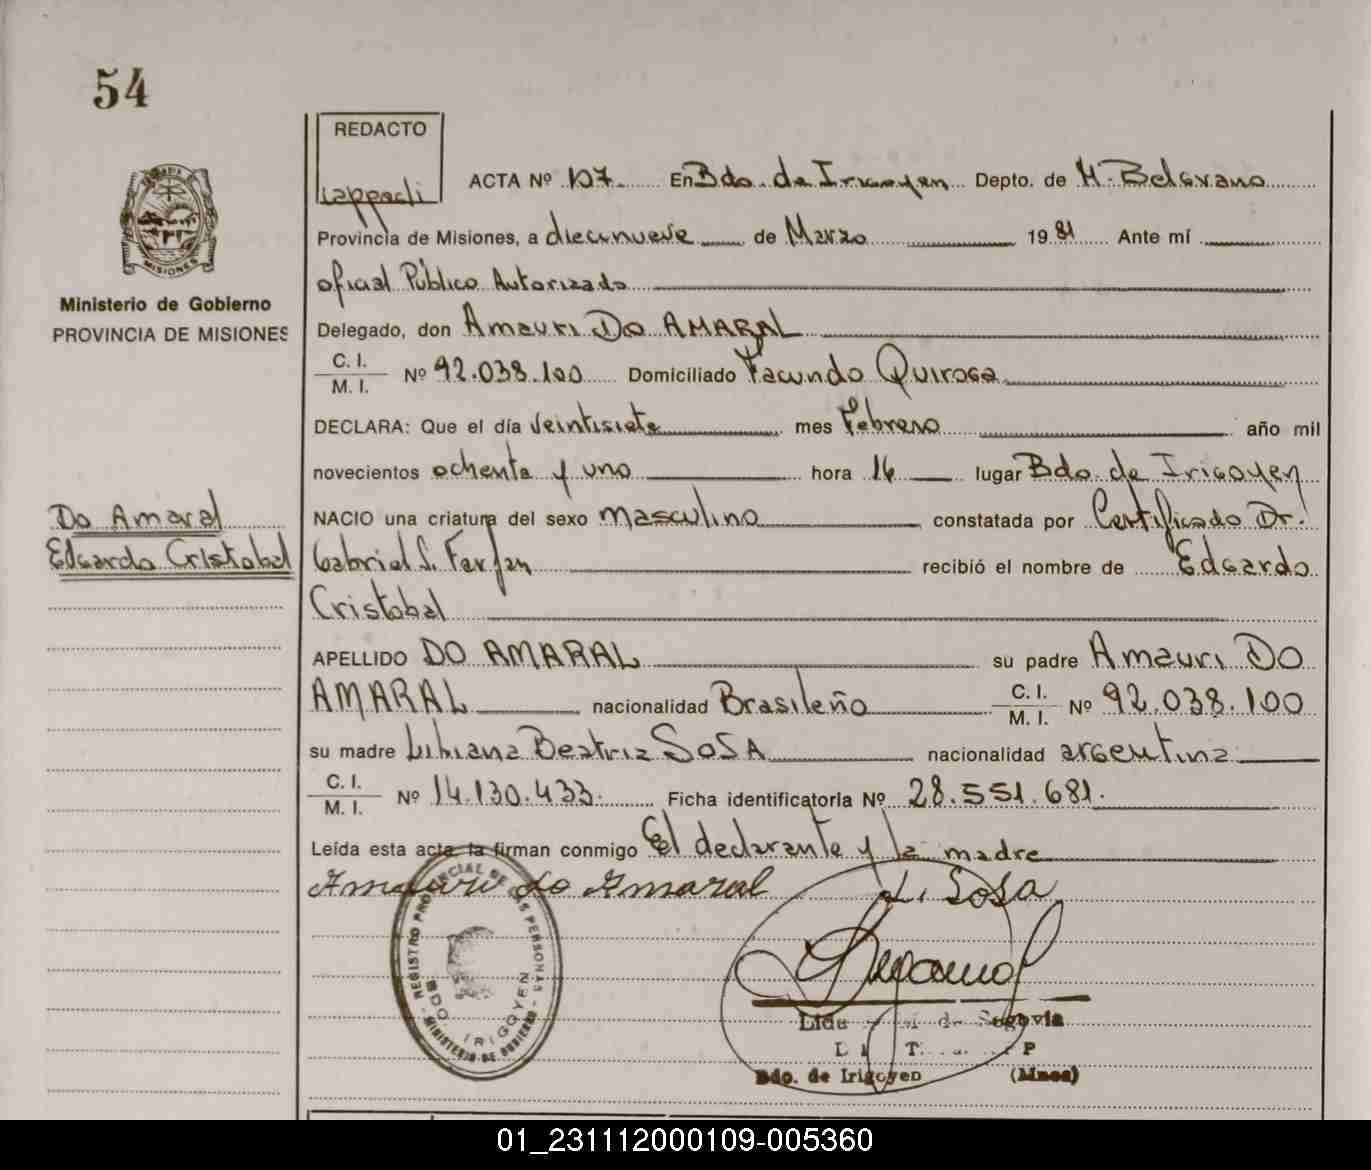 54
REDACTO
ACTA Nº 107. En Bdo. de Irigoyen Depto. de M. Belgrano
Provincia de Misiones, a diecinueve de Marzo 1981 Ante mí
oficial Público Autorizado
Delegado, don Amauri Do AMARAL
C. I.
M. I. Nº 92.038.100 Domiciliado Facundo Quiroga
DECLARA: Que el día veintisiete mes Febrero año mil
novecientos ochenta y uno hora 16 lugar Bdo. de Irigoyen
NACIO una criatura del sexo masculino constatada por Certificado Dr.
Gabriel S. Farfan recibió el nombre de Edgardo
Cristobal
APELLIDO DO AMARAL su padre Amauri DO
AMARAL nacionalidad Brasileño C. I. M. I. Nº 92.038.100
su madre Liliana Beatriz SOSA nacionalidad argentina
C. I.
M. I. Nº 14.130.433. Ficha identificatoria Nº 28.551.681.
Leída esta acta la firman conmigo El declarante y la madre
Amauri do Amaral L. Sosa
MISIONES
Ministerio de Gobierno
PROVINCIA DE MISIONES
Do Amaral
Edgardo Cristobal
REGISTRO PROVINCIAL DE LAS PERSONAS
BDO. IRIGOYEN
MINISTERIO DE GOBIERNO
de Segovia
Bdo. de Irigoyen (Mnes)
01_231112000109-005360